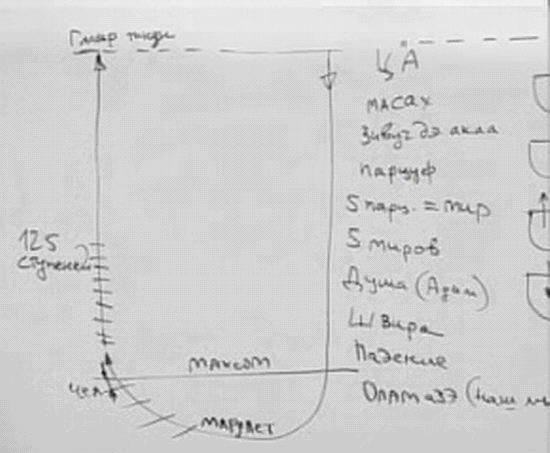 Гмар тикун
ЦА
масах
Зивуг дэ акаа
парцуф
5 парц. = мир
5 миров
Душа (Адам)
Швира
Падение
Олам азэ (наш
125
ступеней
махсом
чел.